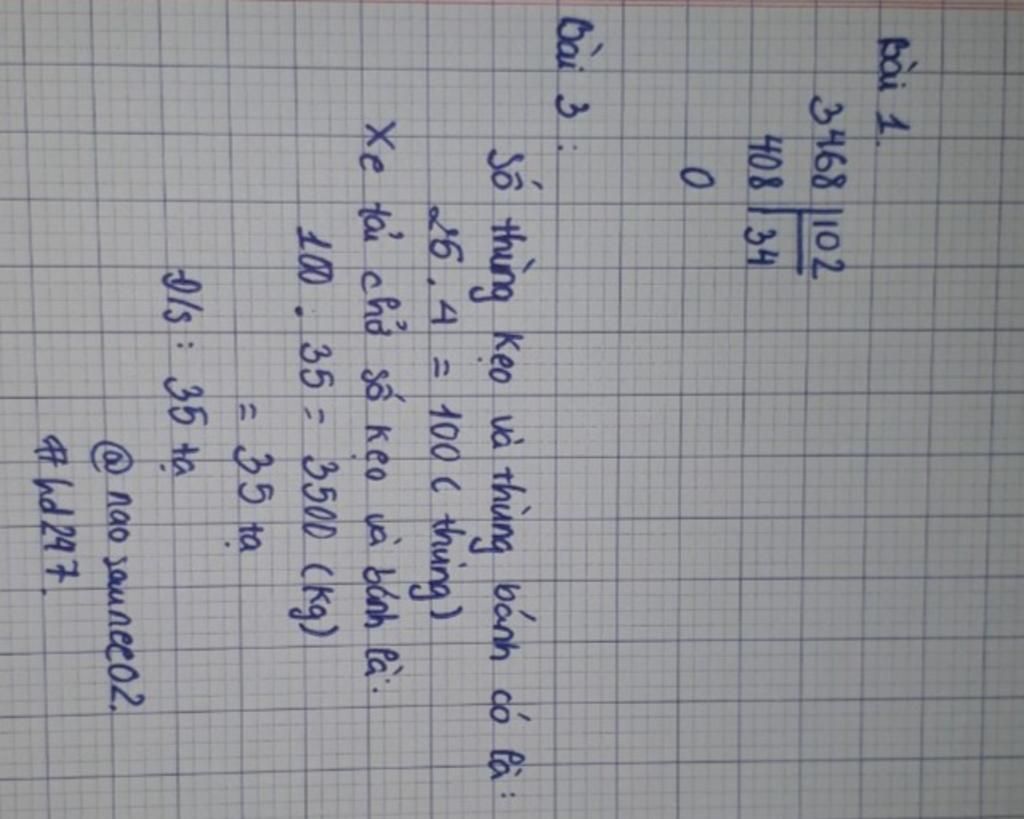 Bài 1.
3468 102
408 34
0
Bài 3:
Số thùng kẹo và thùng bánh có là:
25 . 4 = 100 ( thùng)
Xe tải chở số kẹo và bánh là:
100 . 35 = 3500 (kg)
= 35 tạ
Đ/s: 35 tạ
@ nao saunee02.
# hd247.